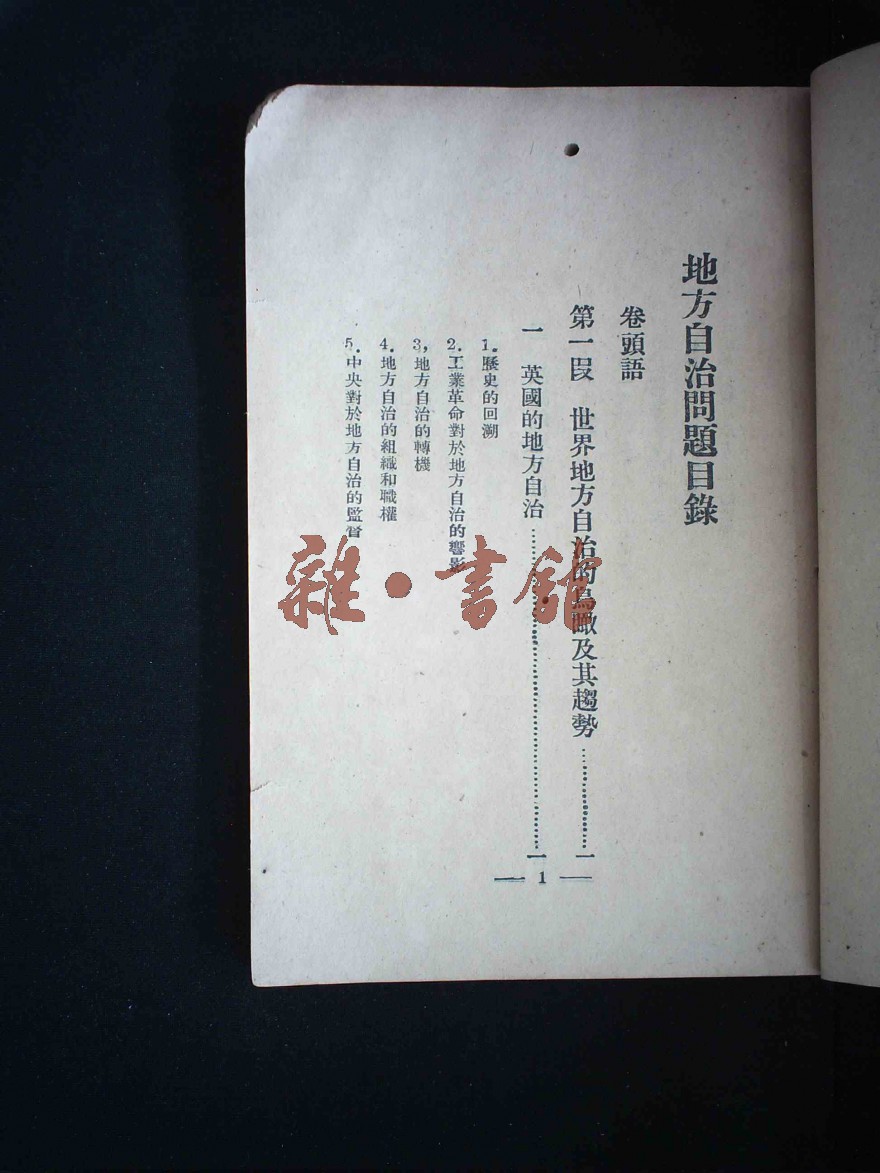 地方自治問題目錄
卷頭語
第一段 世界地方自治的鳥瞰及其趨勢……………一
一 英國的地方自治……………………………一
1.歷史的回溯
2.工業革命對於地方自治的響影
3,地方自治的轉機
4.地方自治的組織和職權
5.中央對於地方自治的監督
— 1 —
雜·書館